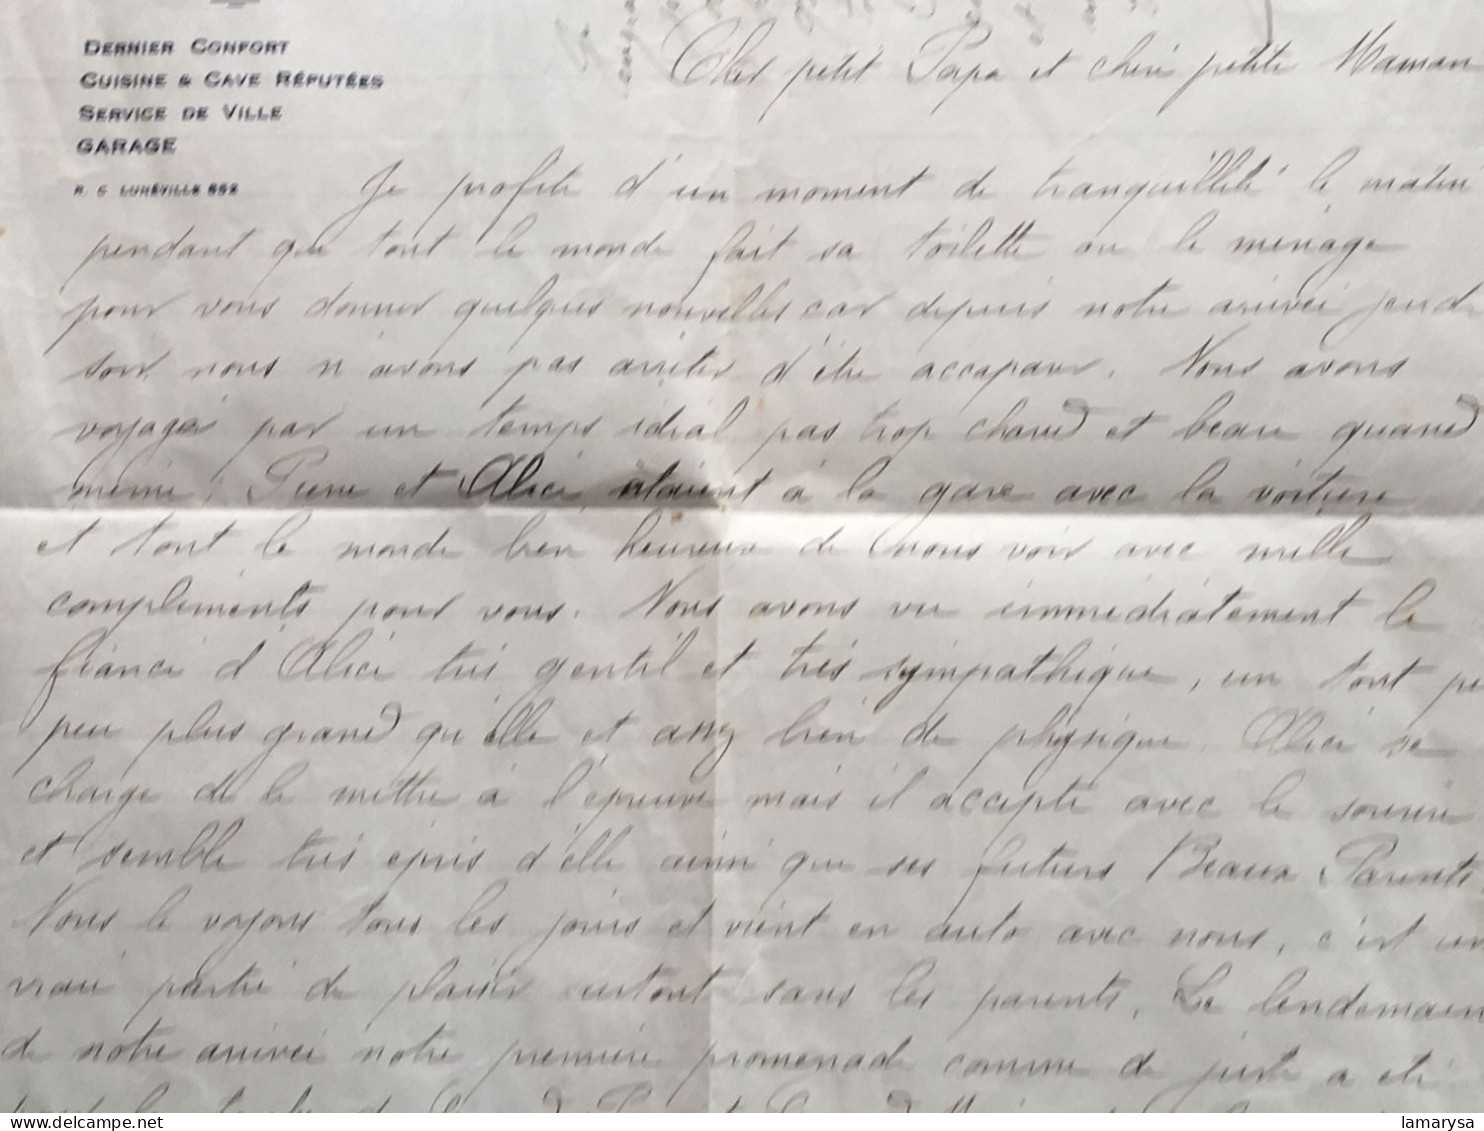 DERNIER CONFORT
CUISINE & CAVE RÉPUTÉES
SERVICE DE VILLE
GARAGE
R. C LUNÉVILLE 552
Cher petit Papa et chère petite Maman
Je profite d'un moment de tranquillité le matin
pendant que tout le monde fait sa toilette ou le ménage
pour vous donner quelques nouvelles car depuis notre arrivée jeudi
soir nous n'avons pas arrêter d'être accaparer. Nous avons
voyagé par un temps idéal pas trop chaud et beau quand
même. Pierre et Alice étaient à la gare avec la voiture
et tout le monde bien heureux de nous voir avec mille
compliments pour vous. Nous avons vu immédiatement le
fiancé d'Alice très gentil et très sympathique, un tout pe
peu plus grand qu'elle et assez bien de physique. Alice se
charge de le mettre à l'épreuve mais il accepte avec le sourire
et semble très épris d'elle ainsi que ses futurs Beaux Parents
Nous le voyons tous les jours et vient en auto avec nous, c'est un
vraie partie de plaisir surtout sans les parents. Le lendemain
de notre arrivée notre première promenade comme de juste a été
lamarysa